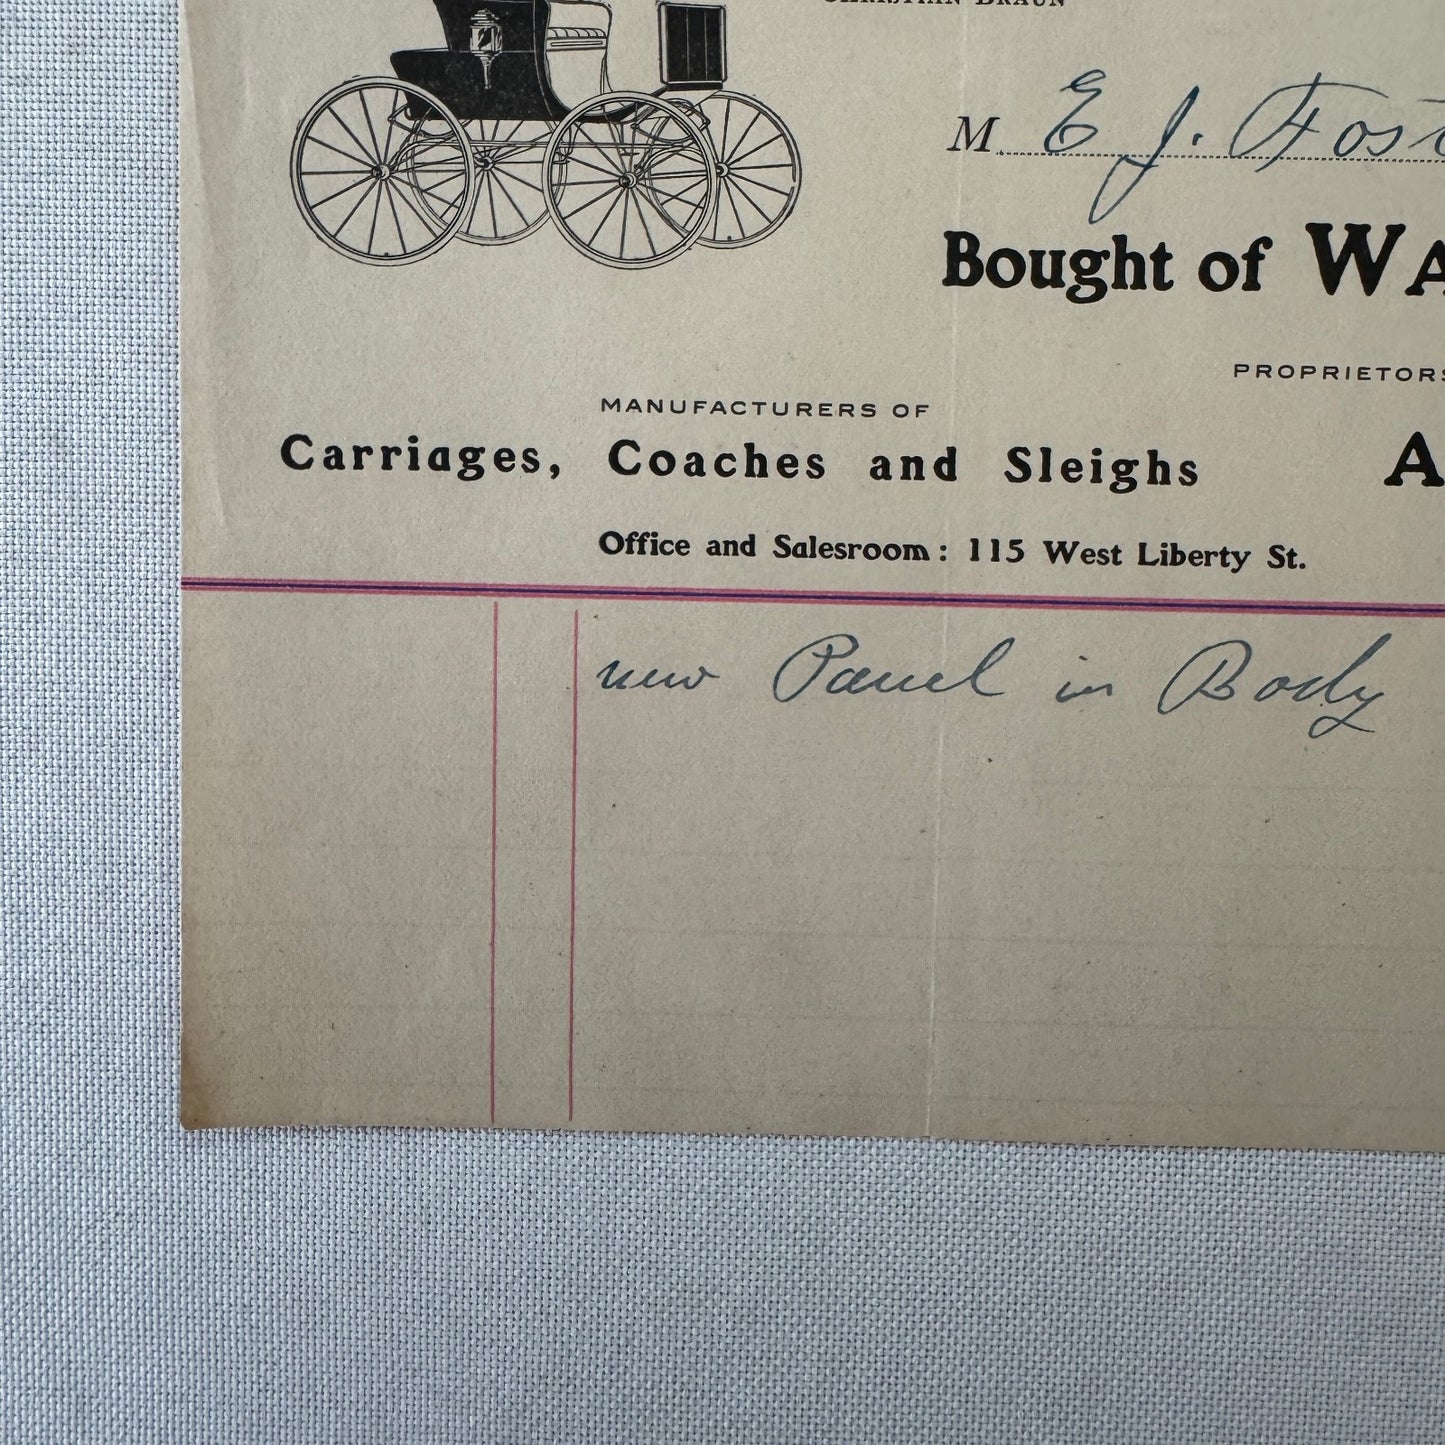 CHRISTIAN BRAUN
M E. J. Fost
Bought of WA
PROPRIETORS
MANUFACTURERS OF
Carriages, Coaches and Sleighs A
Office and Salesroom: 115 West Liberty St.
new Panel in Body